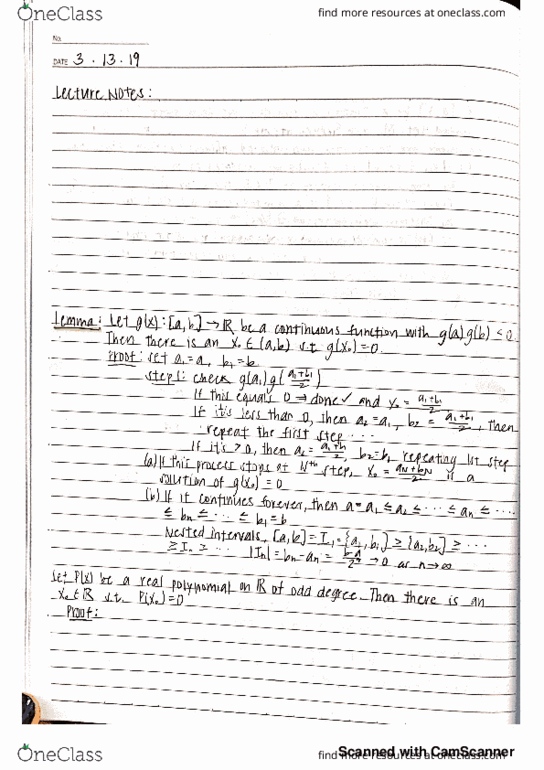 OneClass
find more resources at oneclass.com
No.
DATE 3 · 13 · 19
Lecture Notes:
Lemma: Let g(x): [a,b] → ℝ be a continuous function with g(a)g(b) < 0.
Then there is an x₀ ∈ (a,b) st g(x₀)=0.
Proof: set a₁=a, b₁=b
Step 1: check g(a₁)g((a₁+b₁)/2)
If this equals 0 ⇒ done ✓ and x₀ = (a₁+b₁)/2
If it's less than 0, then a₂=a₁, b₂ = (a₁+b₁)/2, Then
repeat the first step ...
If it's > 0, then a₂ = (a₁+b₁)/2, b₂=b₁ repeating 1st step
(a) If this process stops at Nth step, x₀ = (aN+bN)/2 is a
solution of g(x₀)=0
(b) If it continues forever, then a=a₁ ≤ a₂ ≤ ... ≤ aₙ ≤ ...
≤ bₙ ≤ ... ≤ b₁=b
Nested intervals, [a,b]=I₁=[a₁,b₁] ≥ [a₂,b₂] ≥ ...
≥ Iₙ ≥ ... |Iₙ| = bₙ-aₙ = (b-a)/2ⁿ → 0 as n→∞
Let P(x) be a real polynomial on ℝ of odd degree. Then there is an
x₀ ∈ ℝ st P(x₀)=0
Proof:
OneClass
find more resources at oneclass.com
Scanned with CamScanner